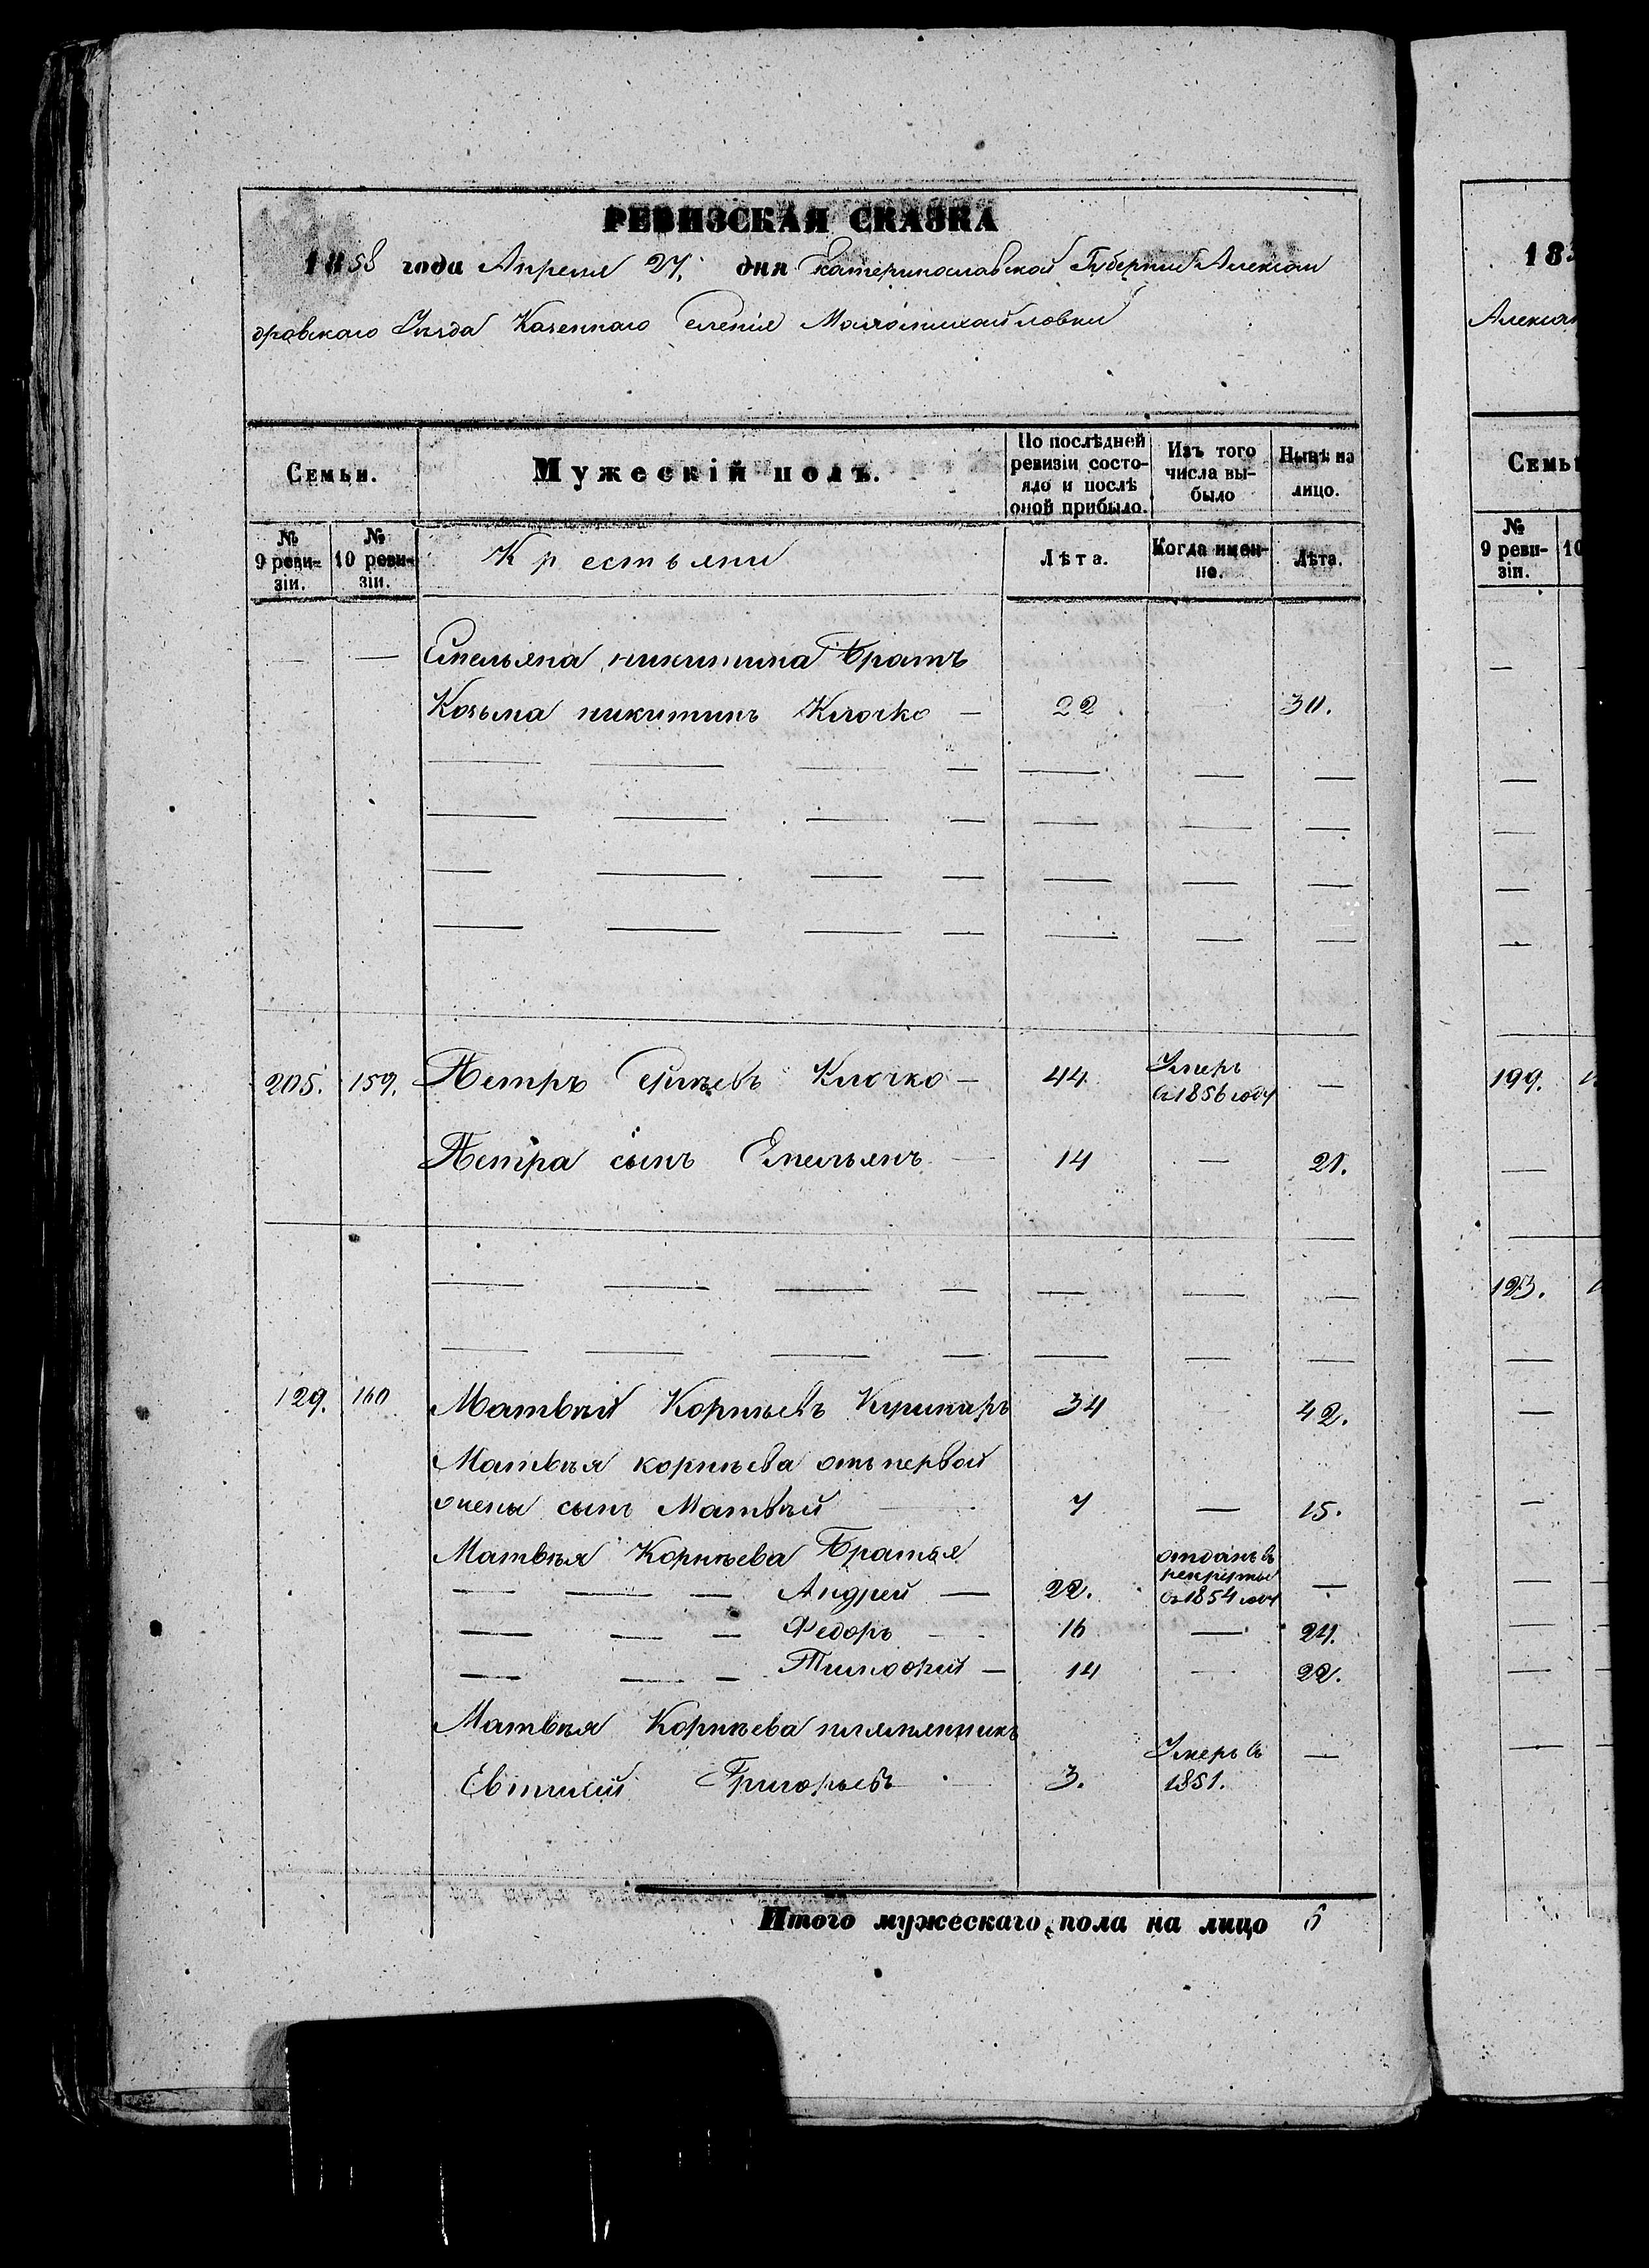 РЕВИЗСКАЯ СКАЗКА
1858 года Апреля 27. дня Екатеринославской Губернии Алексан
дровскаго Уезда Казеннаго селенія Маломихайловки
Семьи.
Мужескій полъ.
По послѣдней ревизіи состояло и послѣ оной прибыло.
Изъ того числа выбыло
Нынѣ на лицо.
№ 9 ревизіи.
№ 10 ревизіи.
Крестьяни
Лѣта.
Когда именно.
Лѣта.
Емельяна никитина Братъ
Козьма никитинъ Клочко — 22 30.
205. 159. Петръ Клочко — 44 Умеръ въ 1856 году —
Петра сынъ Емельянъ — 14 — 21.
129. 160 Матвѣй Корнѣевъ 34 42.
Матвѣя корнѣева отъ первой
жены сынъ Матвѣй — 7 — 15.
Матвѣя Корнѣева Братья
Андрей — 22. отданъ въ рекруты въ 1854 году —
Федоръ — 16 — 24.
Тимофей — 14 — 22.
Матвѣя Корнѣева племянникъ
Евтихій Григорьевъ — 3. Умеръ въ 1851. —
Итого мужескаго пола на лицо 6
183
Алексан
Семьи
№ 9 ревизіи.
10
199.
123.